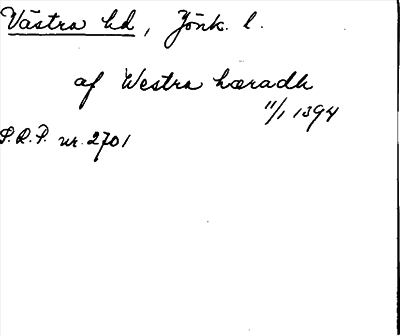 Västra hd, Jönk. l.
af Westra hæradh
11/1 1394
S.R.P. nr. 2701